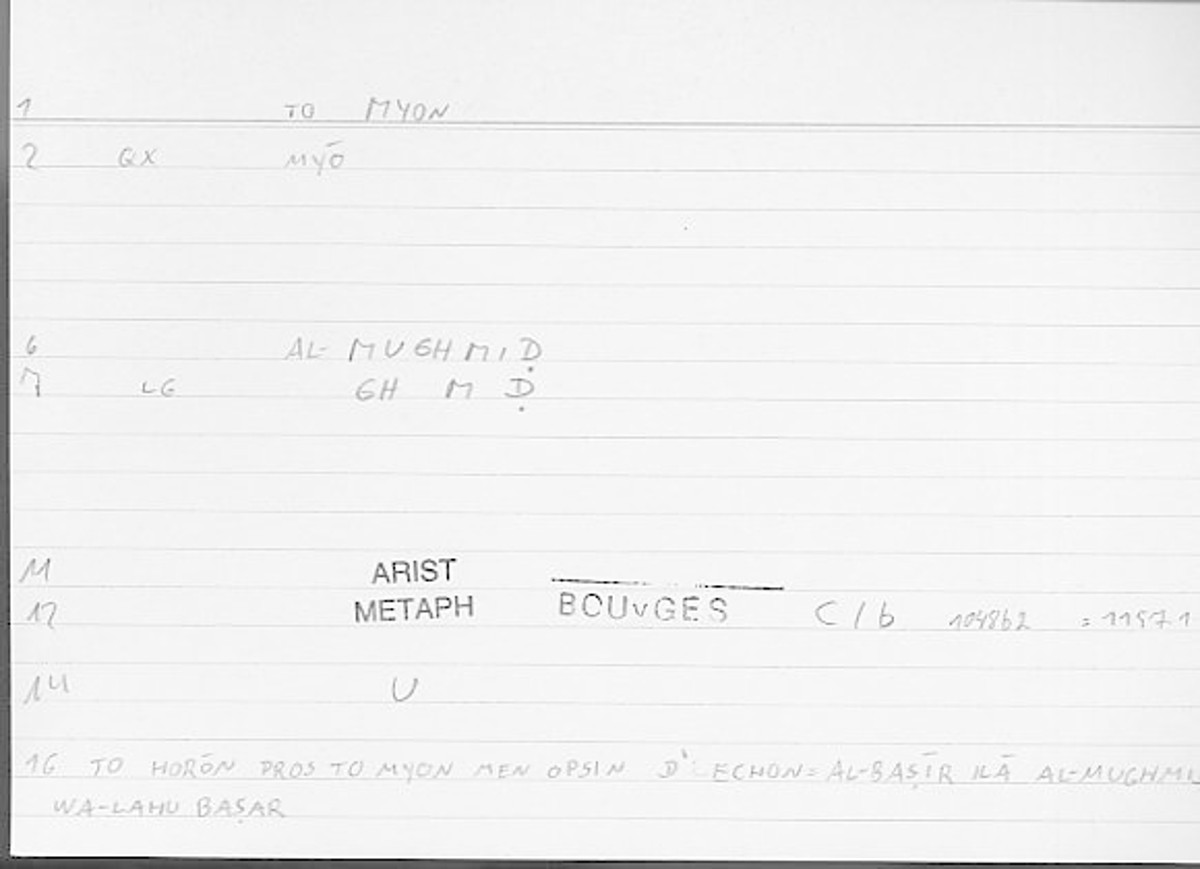 1 TO MYON
2 GX MYŌ
6 AL-MUGHMIḌ
7 LG GH M Ḍ
11 ARIST
12 METAPH BOUvGES C/b 1048b2 = 1157 1
14 U
16 TO HORŌN PROS TO MYON MEN OPSIN D' ECHON = AL-BAṢĪR ILĀ AL-MUGHMI
WA-LAHU BAṢAR